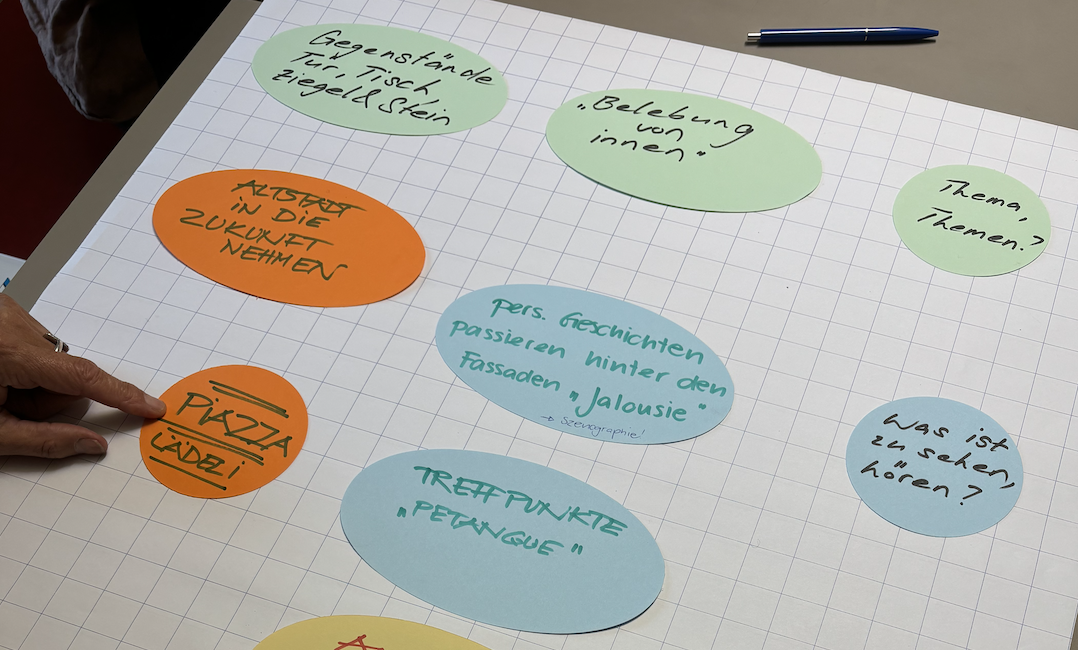 Gegenstände
Tür, Tisch,
Ziegel & Stein
„Belebung
von
innen"
Thema,
Themen?
ALTSTADT
iN DiE
ZUKUNFT
NEHMEN
pers. Geschichten
passieren hinter den
Fassaden „Jalousie"
→ Szenographie!
PiAZZA
LÄDELi
Was ist
zu sehen,
hören?
TREFFPUNKTE
„PETANQUE"